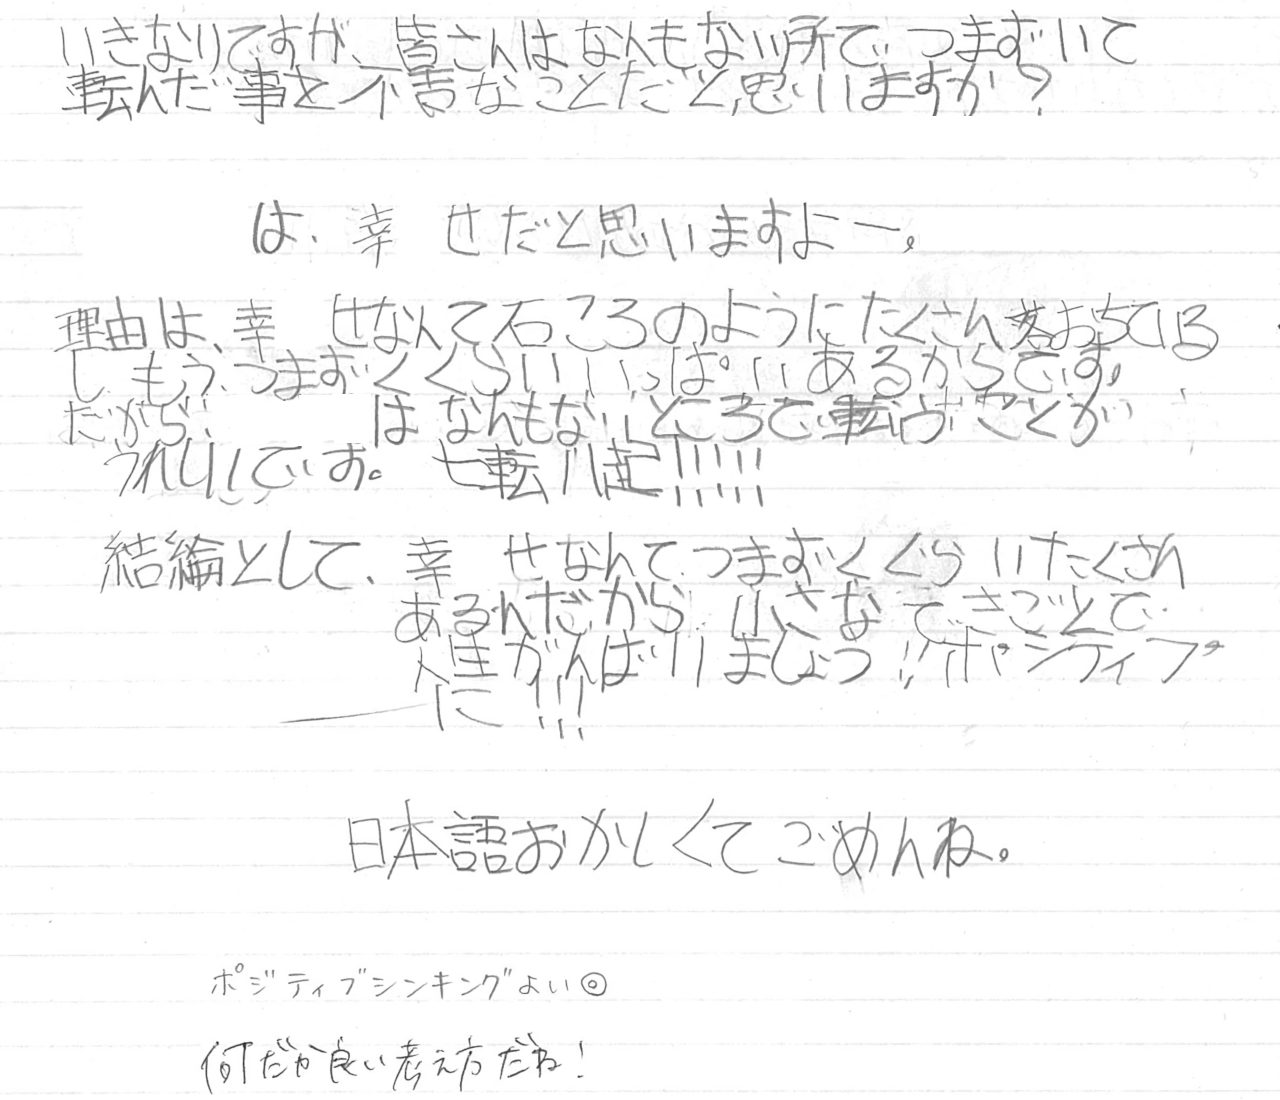 いきなりですが、皆さんはなんもない所でつまずいて
転んだ事を不吉なことだと思いますか？
は、幸せだと思いますよー。
理由は、幸せなんて石ころのようにたくさん落おちている
し、もう、つまずくくらいいっぱいあるからです。
だから、はなんもないところで転ぶことが
うれしいです。七転八起!!!!!
結綸として、幸せなんてつまずくくらいたくさん
あるんだから小さなできごとで
人生がんばりましょう!!ポジティブ
に!!!
日本語おかしくてごめんね。
ポジティブシンキングよい◎
何だか良い考え方だね！